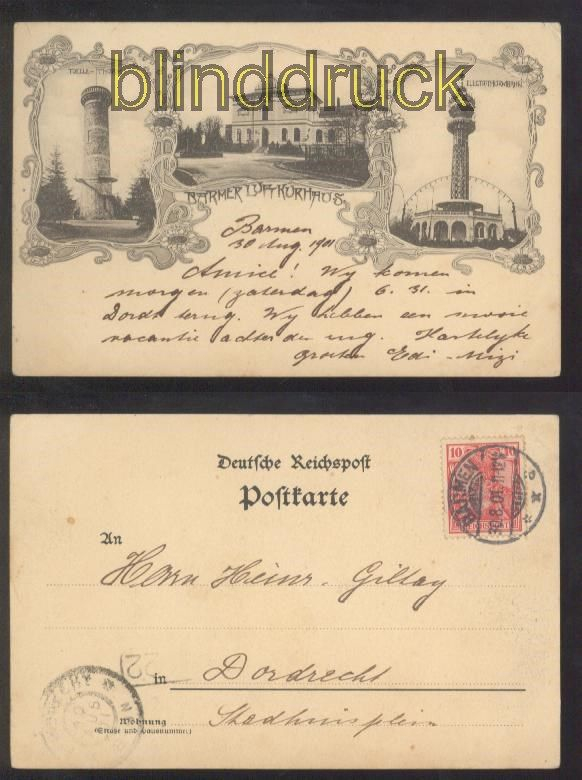 blinddruck
BARMER LUFTKURHAUS
Barmen
30 Aug. 1901
Amice! Wy komen
morgen (zaterdag) 6.31. in
Dordr terug. Wy hebben een mooie
vacantie achter den rug. Hartelyke
groeten Edi - Mizi
Deutsche Reichspost
Postkarte
10
BARMEN
30.8.01.
An
Herrn Heinr. Giltay
22
in Dordrecht
Wohnung
(Straße und Hausnummer)
Stadhuisplein